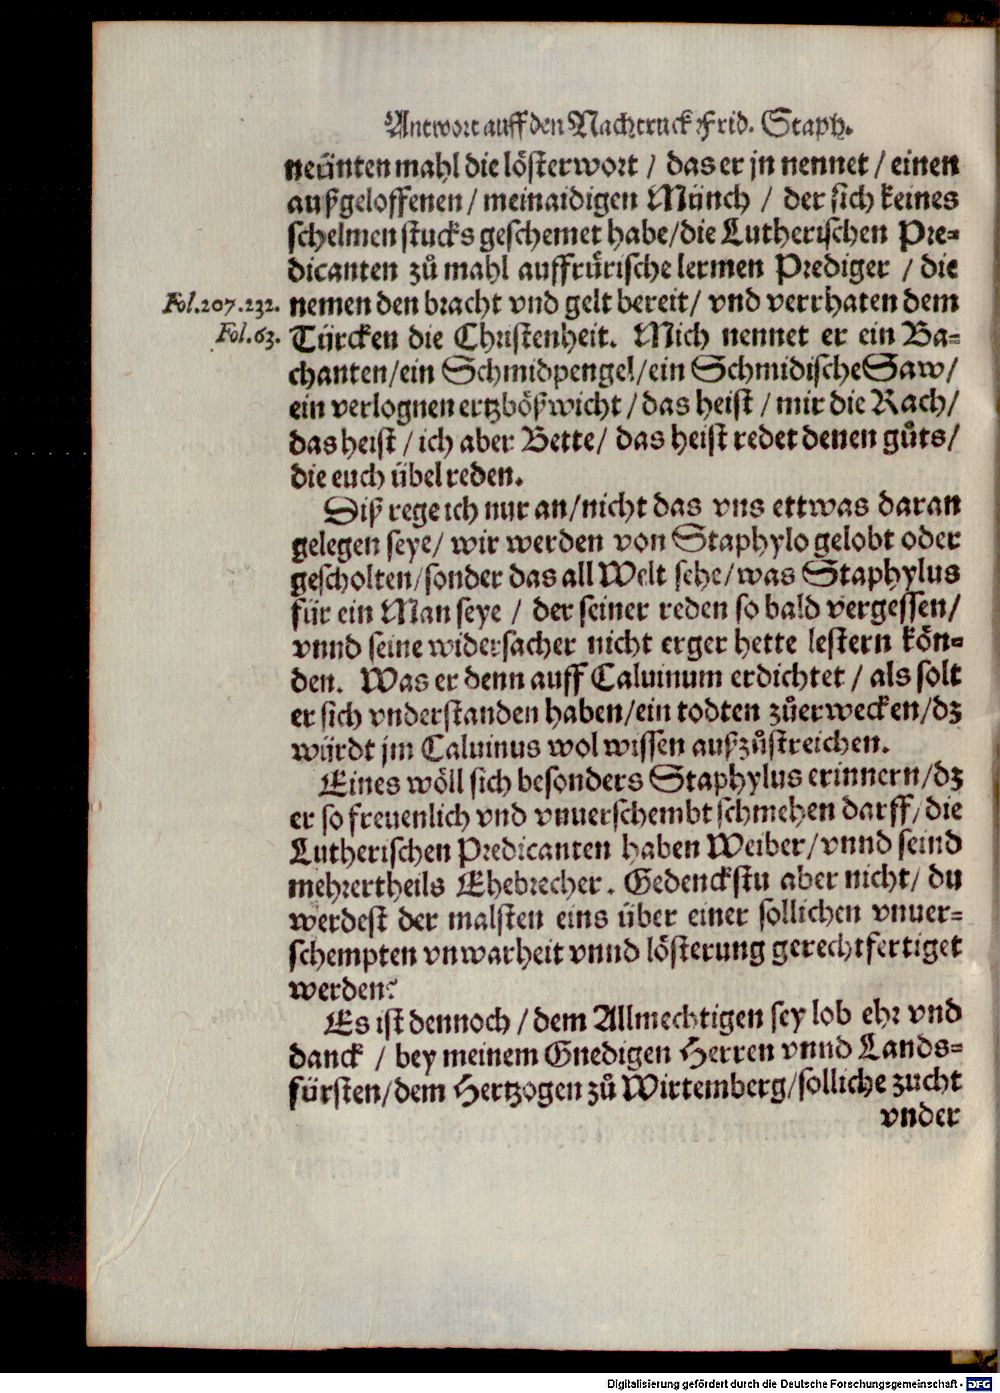 Antwort auff den Nachtruck Frid. Staph.
neünten mahl die lösterwort / das er jn nennet / einen
außgeloffenen / meinaidigen Münch / der sich keines
schelmen stucks geschemet habe / die Lutherischen Pre=
dicanten zů mahl auffrürische lermen Prediger / die
Fol. 207. 232. nemen den bracht vnd gelt bereit / vnd verrhaten dem
Fol. 63. Türcken die Christenheit. Mich nennet er ein Ba=
chanten / ein Schmidpengel / ein Schmidische Saw /
ein verlognen ertzbößwicht / das heist / mir die Rach /
das heist / ich aber Bette / das heist redet denen gůts /
die euch übel reden.
Diß rege ich nur an / nicht das vns ettwas daran
gelegen seye / wir werden von Staphylo gelobt oder
gescholten / sonder das all Welt sehe / was Staphylus
für ein Man seye / der seiner reden so bald vergessen /
vnnd seine widersacher nicht erger hette lestern kön=
den. Was er denn auff Caluinum erdichtet / als solt
er sich vnderstanden haben / ein todten zůerwecken / dz
würdt jm Caluinus wol wissen außzůstreichen.
Eines wöll sich besonders Staphylus erinnern / dz
er so freuenlich vnd vnuerschembt schmehen darff / die
Lutherischen Predicanten haben Weiber / vnnd seind
mehrertheils Ehebrecher. Gedenckstu aber nicht / du
werdest der malsten eins über einer sollichen vnuer=
schempten vnwarheit vnnd lösterung gerechtfertiget
werden?
Es ist dennoch / dem Allmechtigen sey lob ehr vnd
danck / bey meinem Gnedigen Herren vnnd Lands=
fürsten / dem Hertzogen zů Wirtemberg / solliche zucht
vnder
Digitalisierung gefördert durch die Deutsche Forschungsgemeinschaft - DFG